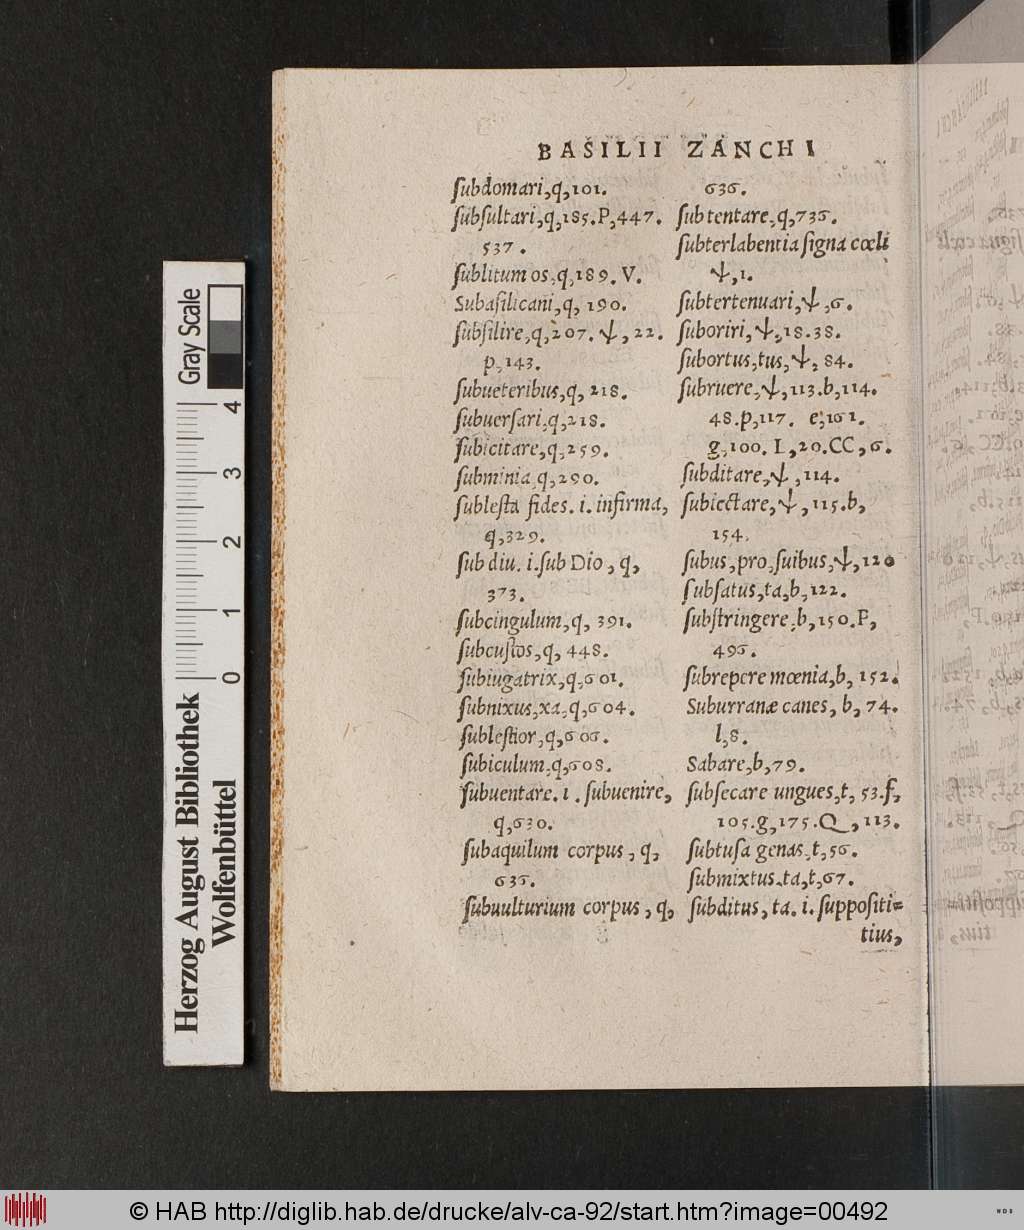 BASILII ZANCHI
ſubdomari,q,101.
ſubſultari,q,185.P,447.
537.
ſublitum os,q,189. V.
Subaſilicani,q, 190.
ſubſilire,q,207. Ψ, 22.
p,143.
ſubueteribus,q, 218.
ſubuerſari,q,218.
ſubicitare,q,259.
ſubminia,q,290.
ſubleſta fides. i. infirma,
q,329.
ſub diu. i.ſub Dio, q,
373.
ſubcingulum,q, 391.
ſubcuſtos,q, 448.
ſubiugatrix,q,601.
ſubnixus,xa,q,604.
ſubleſtior,q,606.
ſubiculum,q,608.
ſubuentare. i . ſubuenire,
q,630.
ſubaquilum corpus, q,
636.
ſubuulturium corpus, q,
636.
ſubtentare,q,736.
ſubterlabentia ſigna cœli
Ψ,1.
ſubtertenuari,Ψ,6.
ſuboriri,Ψ,18.38.
ſubortus,tus,Ψ, 84.
ſubruere,Ψ,113.b,114.
48.p,117. e,161.
g,100. L,20.CC,6.
ſubditare,Ψ,114.
ſubiectare,Ψ,115.b,
154.
ſubus,pro,ſuibus,Ψ,120
ſubſatus,ta,b,122.
ſubſtringere,b,150.P,
496.
ſubrepere mœnia,b, 152.
Suburranæ canes, b, 74.
l,8.
Sabare,b,79.
ſubſecare ungues,t, 53.f,
105.g,175.Q,113.
ſubtuſa genas,t,56.
ſubmixtus,ta,t,67.
ſubditus, ta. i. ſuppoſiti=
tius,
Gray Scale
4
3
2
1
0
Herzog August Bibliothek
Wolfenbüttel
© HAB http://diglib.hab.de/drucke/alv-ca-92/start.htm?image=00492